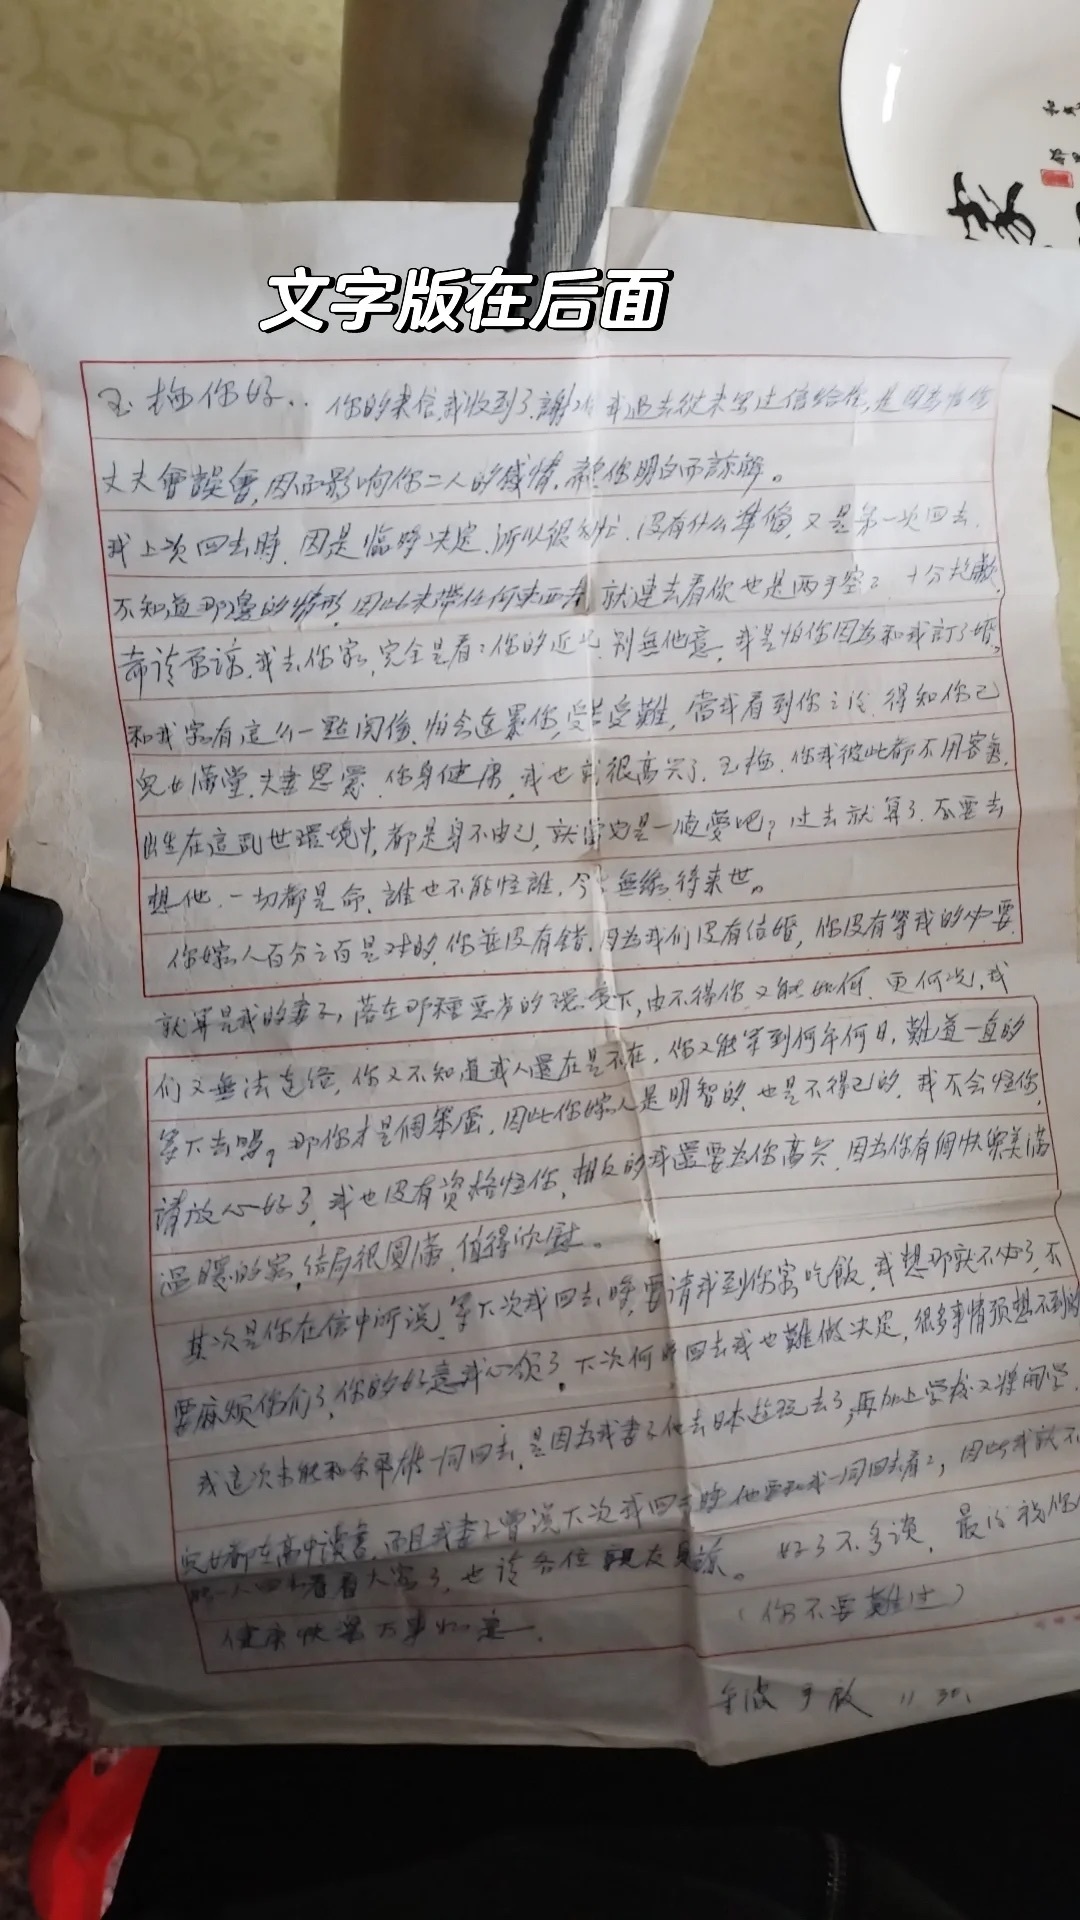 文字版在后面
家
玉梅你好.. 你的来信,我收到了,謝谢 我过去從未写过信给你,是因為怕你
丈夫會誤會,因而影响你二人的感情,都你明白而諒解。
我上次回去時,因是臨時决定,所以很匆忙,没有什么準備,又是第一次回去.
不知道那邊的情形,因此未帶任何东西 就連去看你也是两手空2 十分抱歉,
希请原諒,我去你家,完全是看2你的近况 别無他意,我是怕你因為和我訂了婚,
和我家有這么一點関係,怕会連累你,受苦受難,當我看到你之後,得知你已
兒女满堂,夫妻恩爱,你身健康,我也就很高兴了.玉梅,你我彼此都不用客氣,
出生在這乱世環境中,都是身不由己,就當它是一場夢吧?过去就算了.不要去
想他.一切都是命,誰也不能怪誰.今生無缘,待来世。
你嫁人百分之百是对的,你並没有錯.因為我们没有结婚,你没有等我的必要
就算是我的妻子,落在那種恶劣的環境下,由不得你又能如何.更何况,我
们又無法連络,你又不知道我人還在是不在,你又能等到何年何日,難道一直的
等下去嗎?那你才是個笨蛋,因此你嫁人是明智的,也是不得已的.我不会怪你,
請放心好了,我也没有資格怪你,相反的我還要為你高兴,因為你有個快樂美满
温暖的家,结局很圓满,值得欣慰。
其次是你在信中所说,等下次我回去時,要请我到你家吃飯,我想那就不必了,不
要麻烦你们了,你的好意我心领了.下次何時回去我也難做决定,很多事情预想不到的
我这次未能和余 雄一同回去,是因為我妻子他去日本遊玩去了,再加上学校又将開学,
兒女都在高中讀書,而且我妻子曾说下次我回去時他要和我一同回去看2,因此我就不
能一人回去看看大家了,也请各位親友見諒。 好了不多谈, 最後祝你们
健康快樂万事如意. (你不要難过)
手啟 11.30.